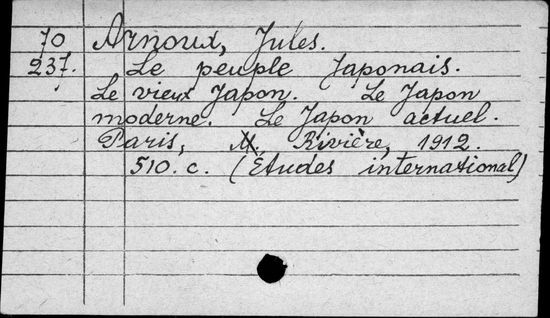 70 Arnoux, Jules.
237. Le peuple Japonais.
Le vieux Japon. Le Japon
moderne. Le Japon actuel.
Paris, M. Rivière, 1912.
510. c. (Études international)